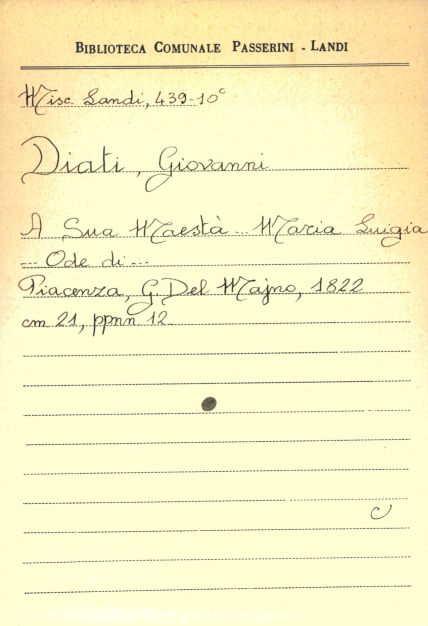 BIBLIOTECA COMUNALE PASSERINI - LANDI
Misc. Landi, 439-10°
Diati, Giovanni
A Sua Maestà... Maria Luigia
... Ode di ...
Piacenza, G. Del Majno, 1822
cm 21, ppnn 12
C